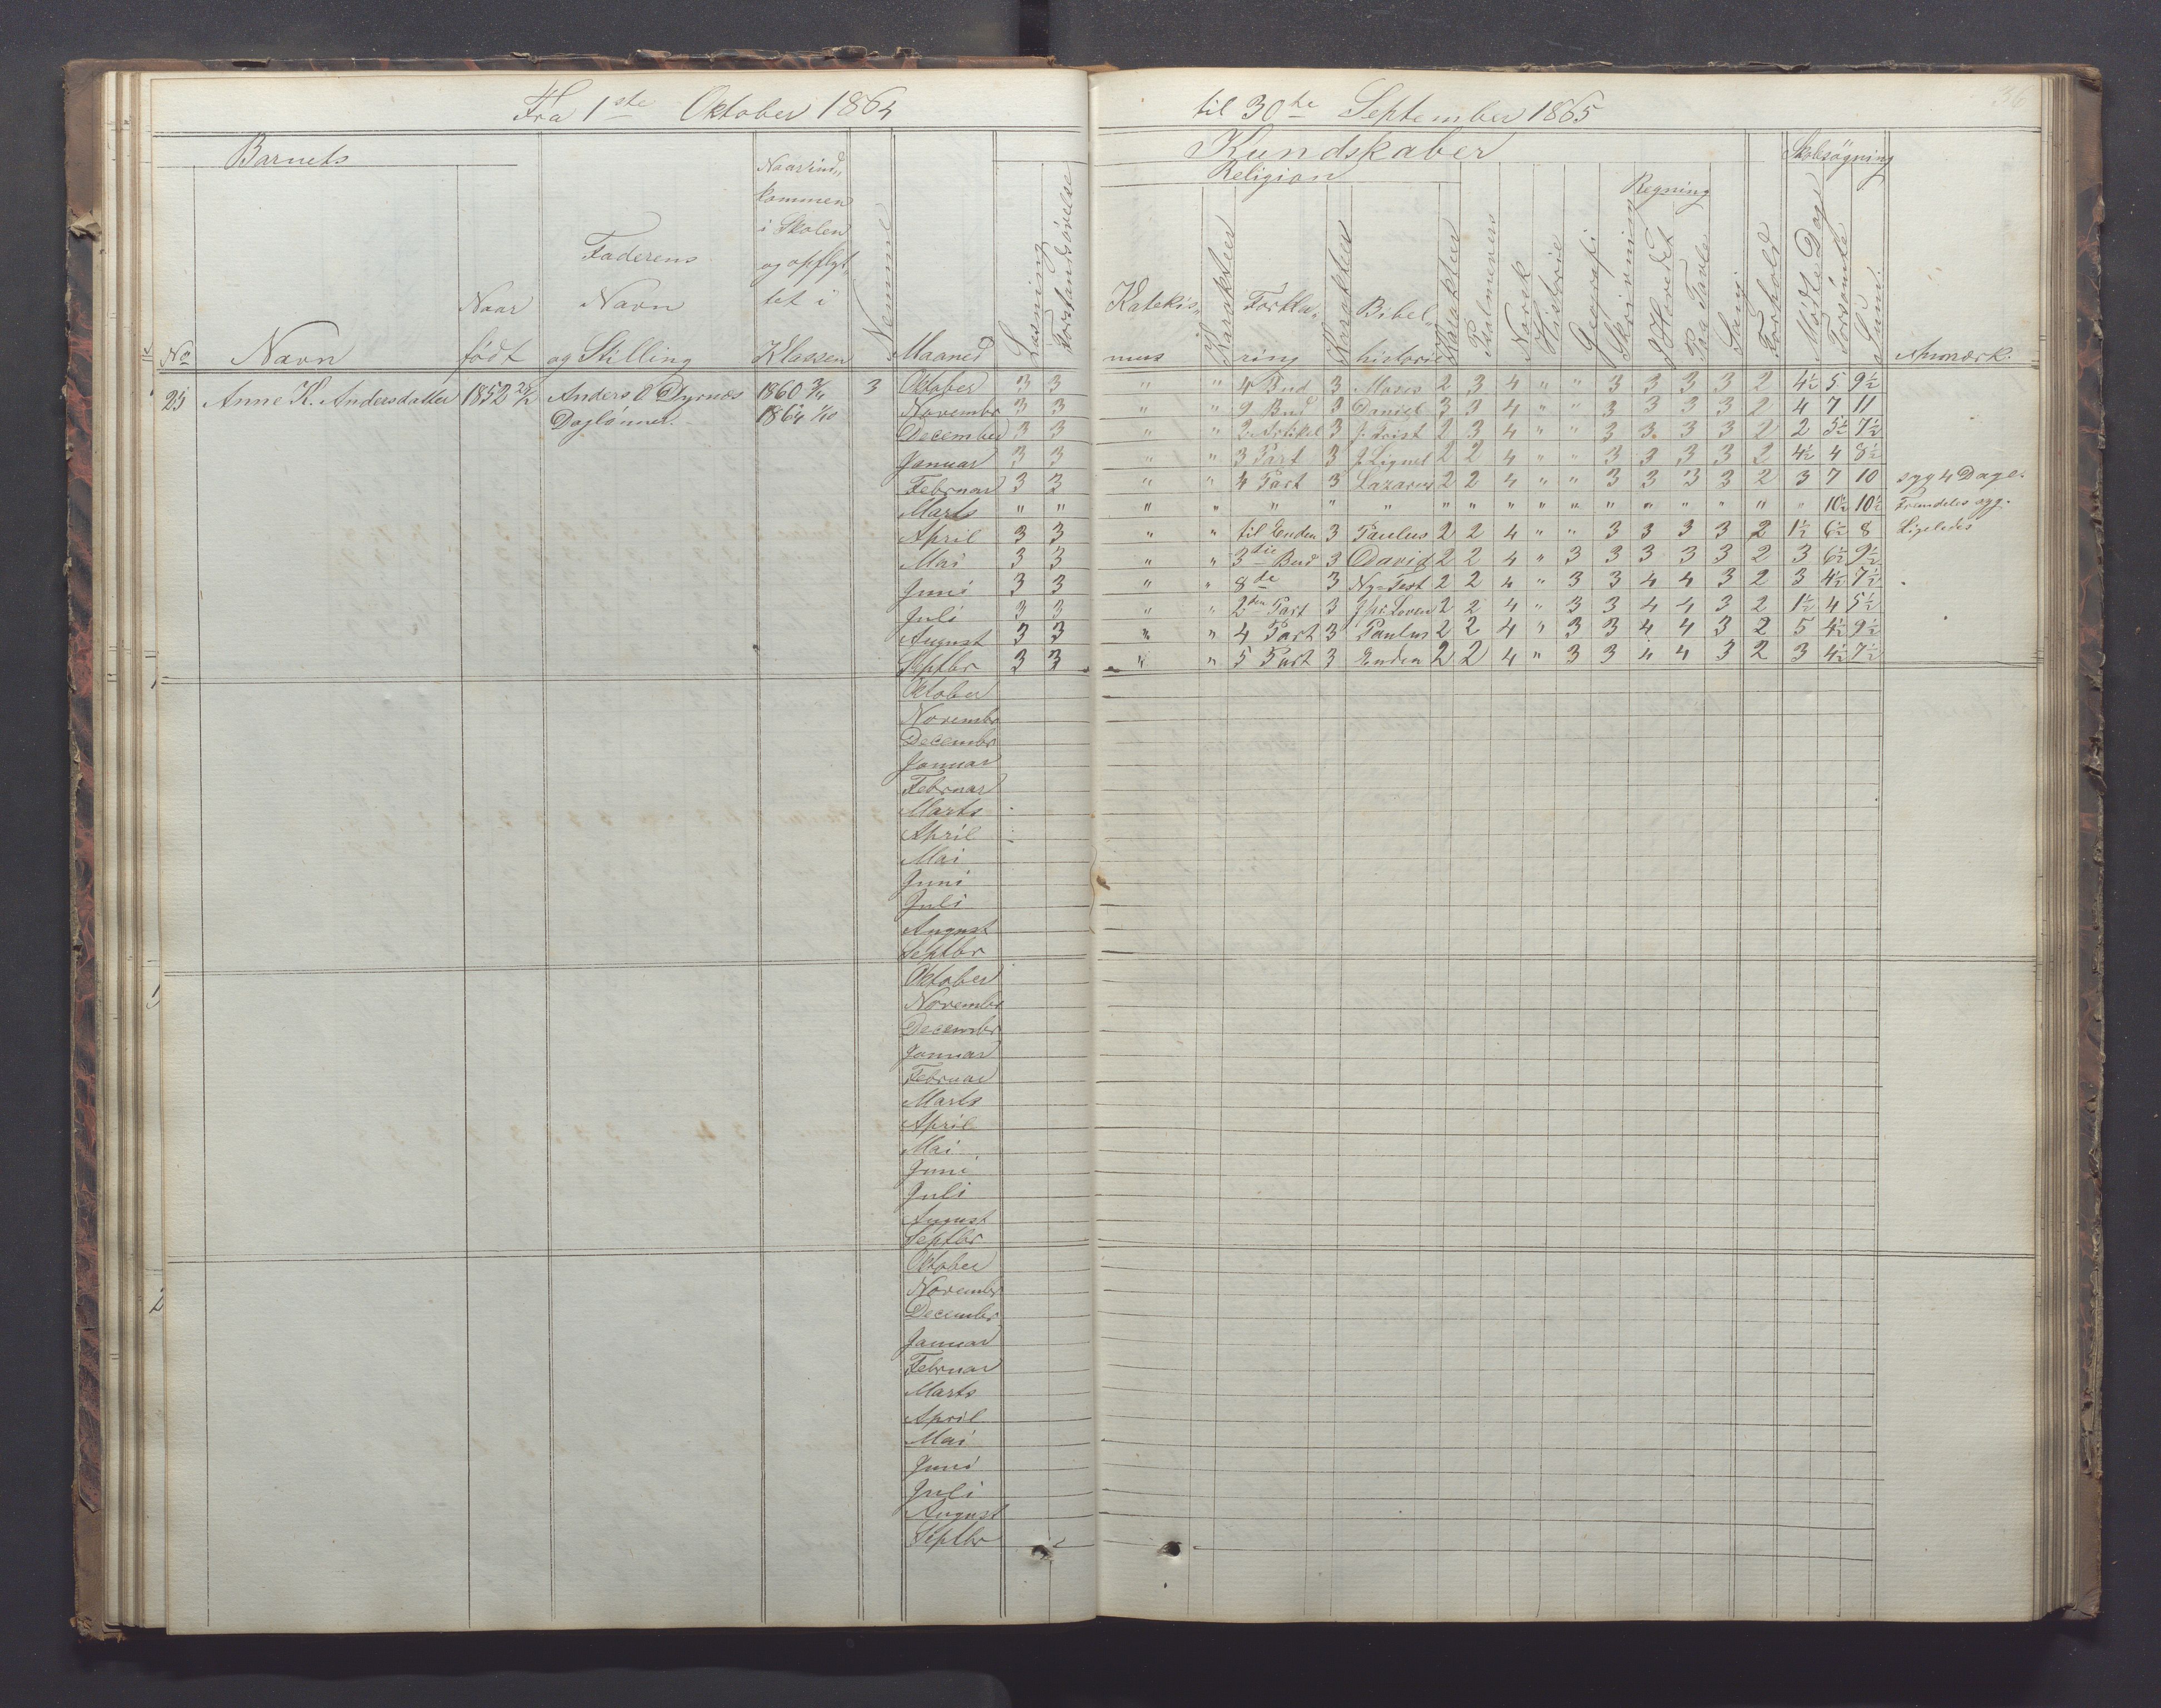 Fra 1ste Oktober 1864 til 30te September 1865
36
Barnets Kundskaber Skolesøgning
Religion Regning
No Navn Naar født Faderens Navn og Stilling Naar ind„kommen i Skolen og opflyt„tet i Klassen Maaned Læsning Forstandsøvelse Katekis„mus Karakter Forkla„ring Karakter Bibel„historie Karakter Psalmevers Norsk Historie Geografi Skrivning I Hovedet Paa Tavle Sang Forhold Mødte Dage Forsømte Sum. Anmærk.
25 Anne K. Andersdatter 1852 Anders O Dyrnæs 1860 3 Oktober 3 3 " " 4 Bud 3 Moses 2 3 4 " " 3 3 3 3 2 4½ 5 9½
Daglønner. 1864 Novembr 3 3 " " 9 Bud 3 Daniel 3 3 4 " " 3 3 3 3 2 4 7 11
December 3 3 " " 2 Artikel 3 2 3 4 " " 3 3 3 3 2 2 5½ 7½
Januar 3 3 " " 3 Part 3 2 2 4 " " 3 3 3 3 2 4½ 4 8½
Februar 3 3 " " 4 Part 3 Lazarus 2 2 4 " " 3 3 3 3 2 3 7 10 syg 4 Dage.
Marts " " " " " " " " " " " " " " " " " " 10½ 10½ Fremdeles syg.
April 3 3 " " til Enden 3 Paulus 2 2 4 " " 3 3 3 3 2 1½ 6½ 8 Ligeledes
Mai 3 3 " " 3die Bud 3 David 2 2 4 " 3 3 3 3 3 2 3 6½ 9½
Juni 3 3 " " 8de 3 Ny-Test 2 2 4 " 3 3 4 4 3 2 3 4½ 7½
Juli 3 3 " " 2den Part 3 2 2 4 " 3 3 4 4 3 2 1½ 4 5½
August 3 3 " " 4 Part 3 Paulus 2 2 4 " 3 3 4 4 3 2 5 4½ 9½
Septbr 3 3 " " 5 Part 3 Enden 2 2 4 " 3 3 4 4 3 2 3 4½ 7½
Oktober
Novembr
Decembr
Januar
Februar
Marts
April
Mai
Juni
Juli
August
Septbr
Oktober
Novembr
Decembr
Januar
Februar
Marts
April
Mai
Juni
Juli
August
Septbr
Oktober
Novembr
Decembr
Januar
Februar
Marts
April
Mai
Juni
Juli
August
Septbr